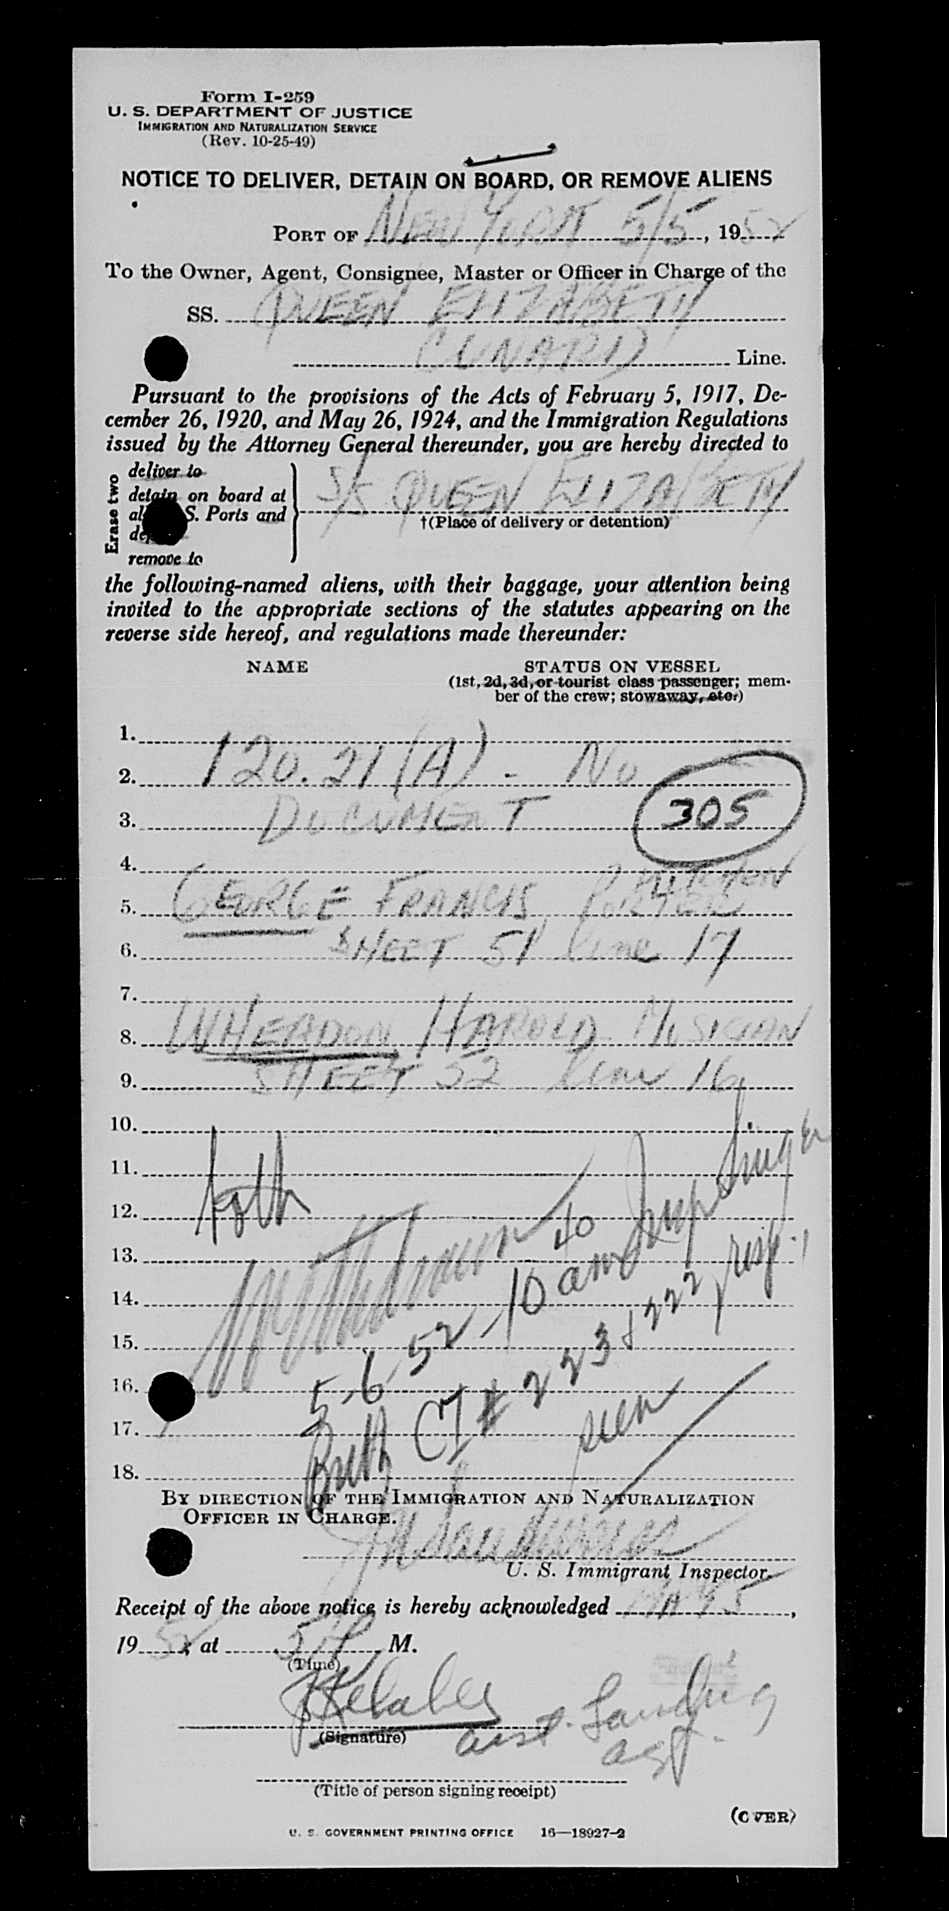 Form I-259
U. S. DEPARTMENT OF JUSTICE
IMMIGRATION AND NATURALIZATION SERVICE
(Rev. 10-25-49)
NOTICE TO DELIVER, DETAIN ON BOARD, OR REMOVE ALIENS
PORT OF NEW YORK 5/5, 1952
To the Owner, Agent, Consignee, Master or Officer in Charge of the
SS. QUEEN ELIZABETH
CUNARD Line.
Pursuant to the provisions of the Acts of February 5, 1917, De-
cember 26, 1920, and May 26, 1924, and the Immigration Regulations
issued by the Attorney General thereunder, you are hereby directed to
Erase two
deliver to
detain on board at
al S. Ports and
de
remove to
S/S QUEEN ELIZABETH
†(Place of delivery or detention)
the following-named aliens, with their baggage, your attention being
invited to the appropriate sections of the statutes appearing on the
reverse side hereof, and regulations made thereunder:
NAME STATUS ON VESSEL
(1st, 2d, 3d, or tourist class passenger; mem-
ber of the crew; stowaway, etc.)
1.
2. 120.21(A) - No
3. DOCUMENT 305
4. KITCHEN
5. GEORGE FRANCIS, PORTER
6. SHEET 51 line 17
7.
8. WHEADON, HAROLD MUSICIAN
9. SHEET 52 line 16
10.
11. both
12.
13. Withdrawn to Insp Singer
14. 5-6-52 - 10 am
15. Both CI # 223 & 222, resp.,
16. seen
17.
18.
BY DIRECTION OF THE IMMIGRATION AND NATURALIZATION
OFFICER IN CHARGE.
U. S. Immigrant Inspector.
Receipt of the above notice is hereby acknowledged MAY 5,
1952, at 5 P M.
(Time)
(Signature)
asst. Landing
agt.
(Title of person signing receipt)
(OVER)
U. S. GOVERNMENT PRINTING OFFICE 16—18927-2